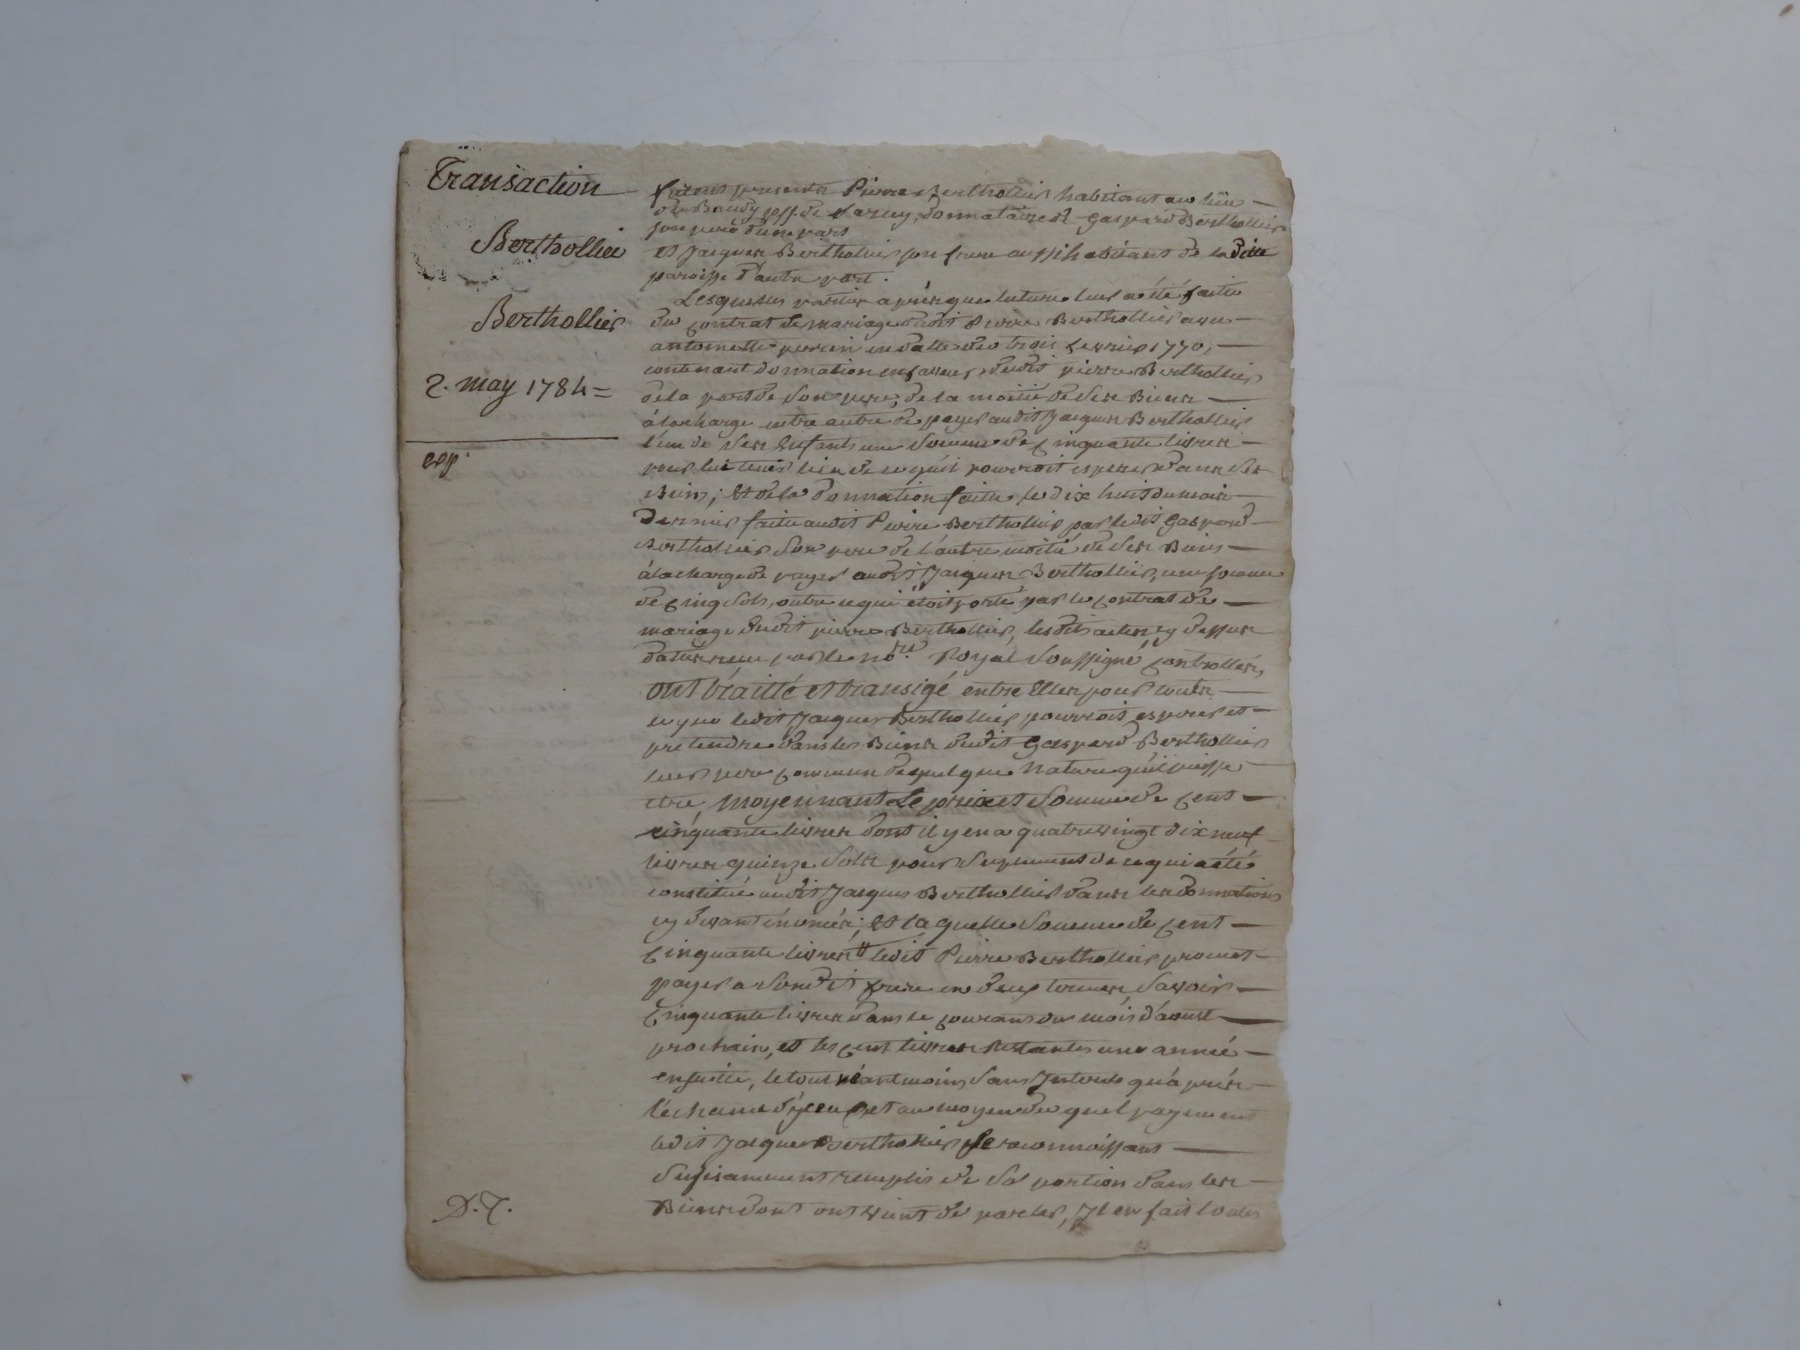 Transaction
Berthollier
Berthollier
2. may 1784=
exp.
furent presents Pierre Berthollier habitant au lieu
de Baudy pss. de Sarcey, donnataire de Gaspard Berthollier
son pere d'une part
et Jacques Berthollier son frere aussi habitant de la dite
paroisse d'autre part.
Lesquelles parties après que lecture leur a été faite
du contrat de mariage dudit Pierre Berthollier avec
antoinette perrin en datte du trois fevrier 1770,
contenant donnation en faveur dudit pierre Berthollier
de la part de Son pere, de la moitié de Ses Biens
à la charge entre autre de payer audit Jacques Berthollier
l'un de Ses Enfants une Somme de Cinquante livres
pour lui tenir lieu de ce qu'il pourroit esperer dans Ses
Biens; Et de la donnation faitte le dix huit du mois
dernier faite audit Pierre Berthollier par ledit Gaspard
Berthollier Son pere de l'autre moitié de Ses Biens
à la charge de payer audit Jacques Berthollier, une somme
de Cinq Sols, outre ce qui étoit porté par le Contrat de
mariage dudit pierre Berthollier, lesdits actes cy dessus
datés reçu par le nore. Royal Soussigné, Controllés,
ont traitté et transigé entre Elles pour toute
ce que ledit Jacques Berthollier pourroit esperer et
pretendre dans les Biens dudit Gaspard Berthollier
leur pere Commun de quelque Nature qu'il puisse
etre, moyennant Le prix et Somme de Cent
cinquante livres dont il y en a quatrevingt dix neuf
livres quinze Sols pour Suplement de ce qui a été
constitué audit Jacques Berthollier dans les donnations
cy devant énoncés; Et la quelle Somme de Cent
Cinquante livres ledit Pierre Berthollier promet
payer a Sondit frere en deux termes Savoir
Cinquante livres dans le courant du mois d'aoust
prochain, et les Cent livres Restantes une année
ensuitte, le tout néantmoins Sans Interets qu'après
l'échance d'yceux, et au moyen du quel payement
ledit Jacques Berthollier Se reconnoissant
Sufisamment remplis de Sa portion dans les
Biens dont ont vient de parler, Il en fait toutes
D.T.